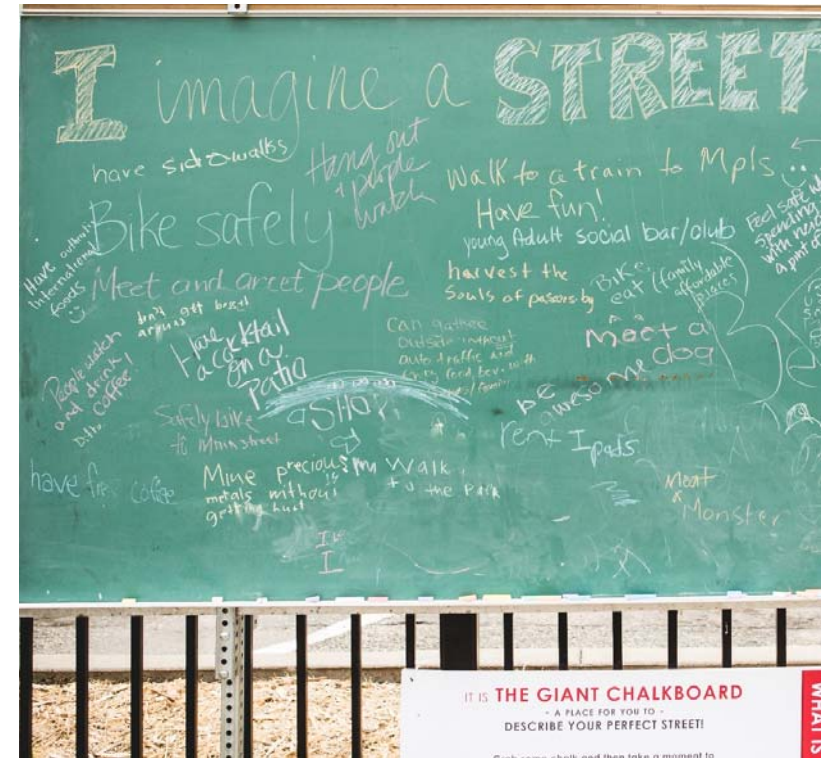 I imagine a STREET
have sidewalks
Hang out
+ people
watch
Walk to a train to Mpls
Have fun!
young Adult social bar/club
Feel safe
Spending
with
a pint of
Bike safely
Have authentic
International
foods
Meet and greet people
harvest the
Souls of passersby
Bike,
eat (family
affordable
places
don't get bored
Have
a cocktail
on a
Patio
Can gather
outside without
auto traffic and
meet a
dog
People watch
and drink
coffee!
Ditto
a SHOP
be
awesome
Safely bike
to Mainstreet
rent Ipads
have free coffee
Mine precious
metals without
getting hurt
Walk
to the Park
Meat
a
Monster
IT IS THE GIANT CHALKBOARD
- A PLACE FOR YOU TO -
DESCRIBE YOUR PERFECT STREET!
Grab some chalk and then take a moment to
WHAT IS